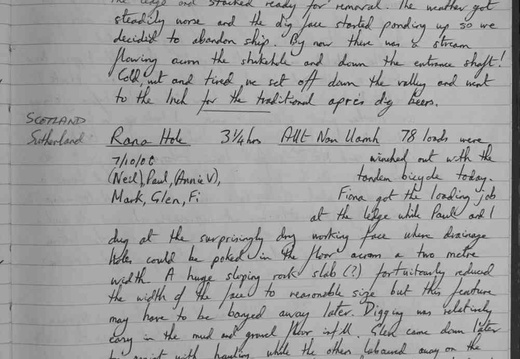 the ledge and stacked ready for removal. The weather got
steadily worse and the dig face started ponding up so we
decided to abandon ship. By now there was a stream
flowing across the shakehole and down the entrance shaft!
Cold, wet and tired we set off down the valley and went
to the Inch for the traditional après dig beers.
SCOTLAND
Sutherland Rana Hole 3¼hrs Allt Nan Uamh 78 loads were
7/10/00 winched out with the
(Neil), Paul, (Annie V), tandem bicycle today.
Mark, Glen, Fi Fiona got the loading job
at the ledge while Paul and I
dug at the surprisingly dry working face where drainage
holes could be poked in the floor across a two metre
width. A huge sloping rock slab (?) fortuitously reduced
the width of the face to reasonable size but this feature
may have to be banged away later. Digging was relatively
easy in the mud and gravel floor infill. Glen came down later
to assist with hauling while the others laboured away on the